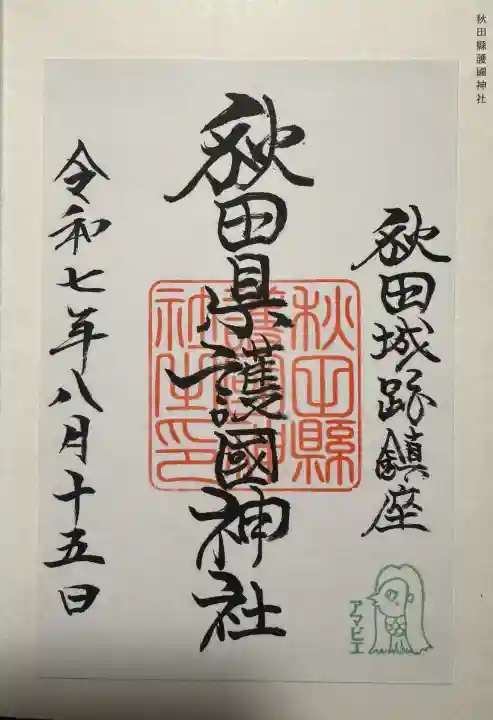 秋田縣護國神社
秋田城跡鎮座
秋田県護國神社
秋田縣
護國神
社之印
令和七年八月十五日
アマビエ